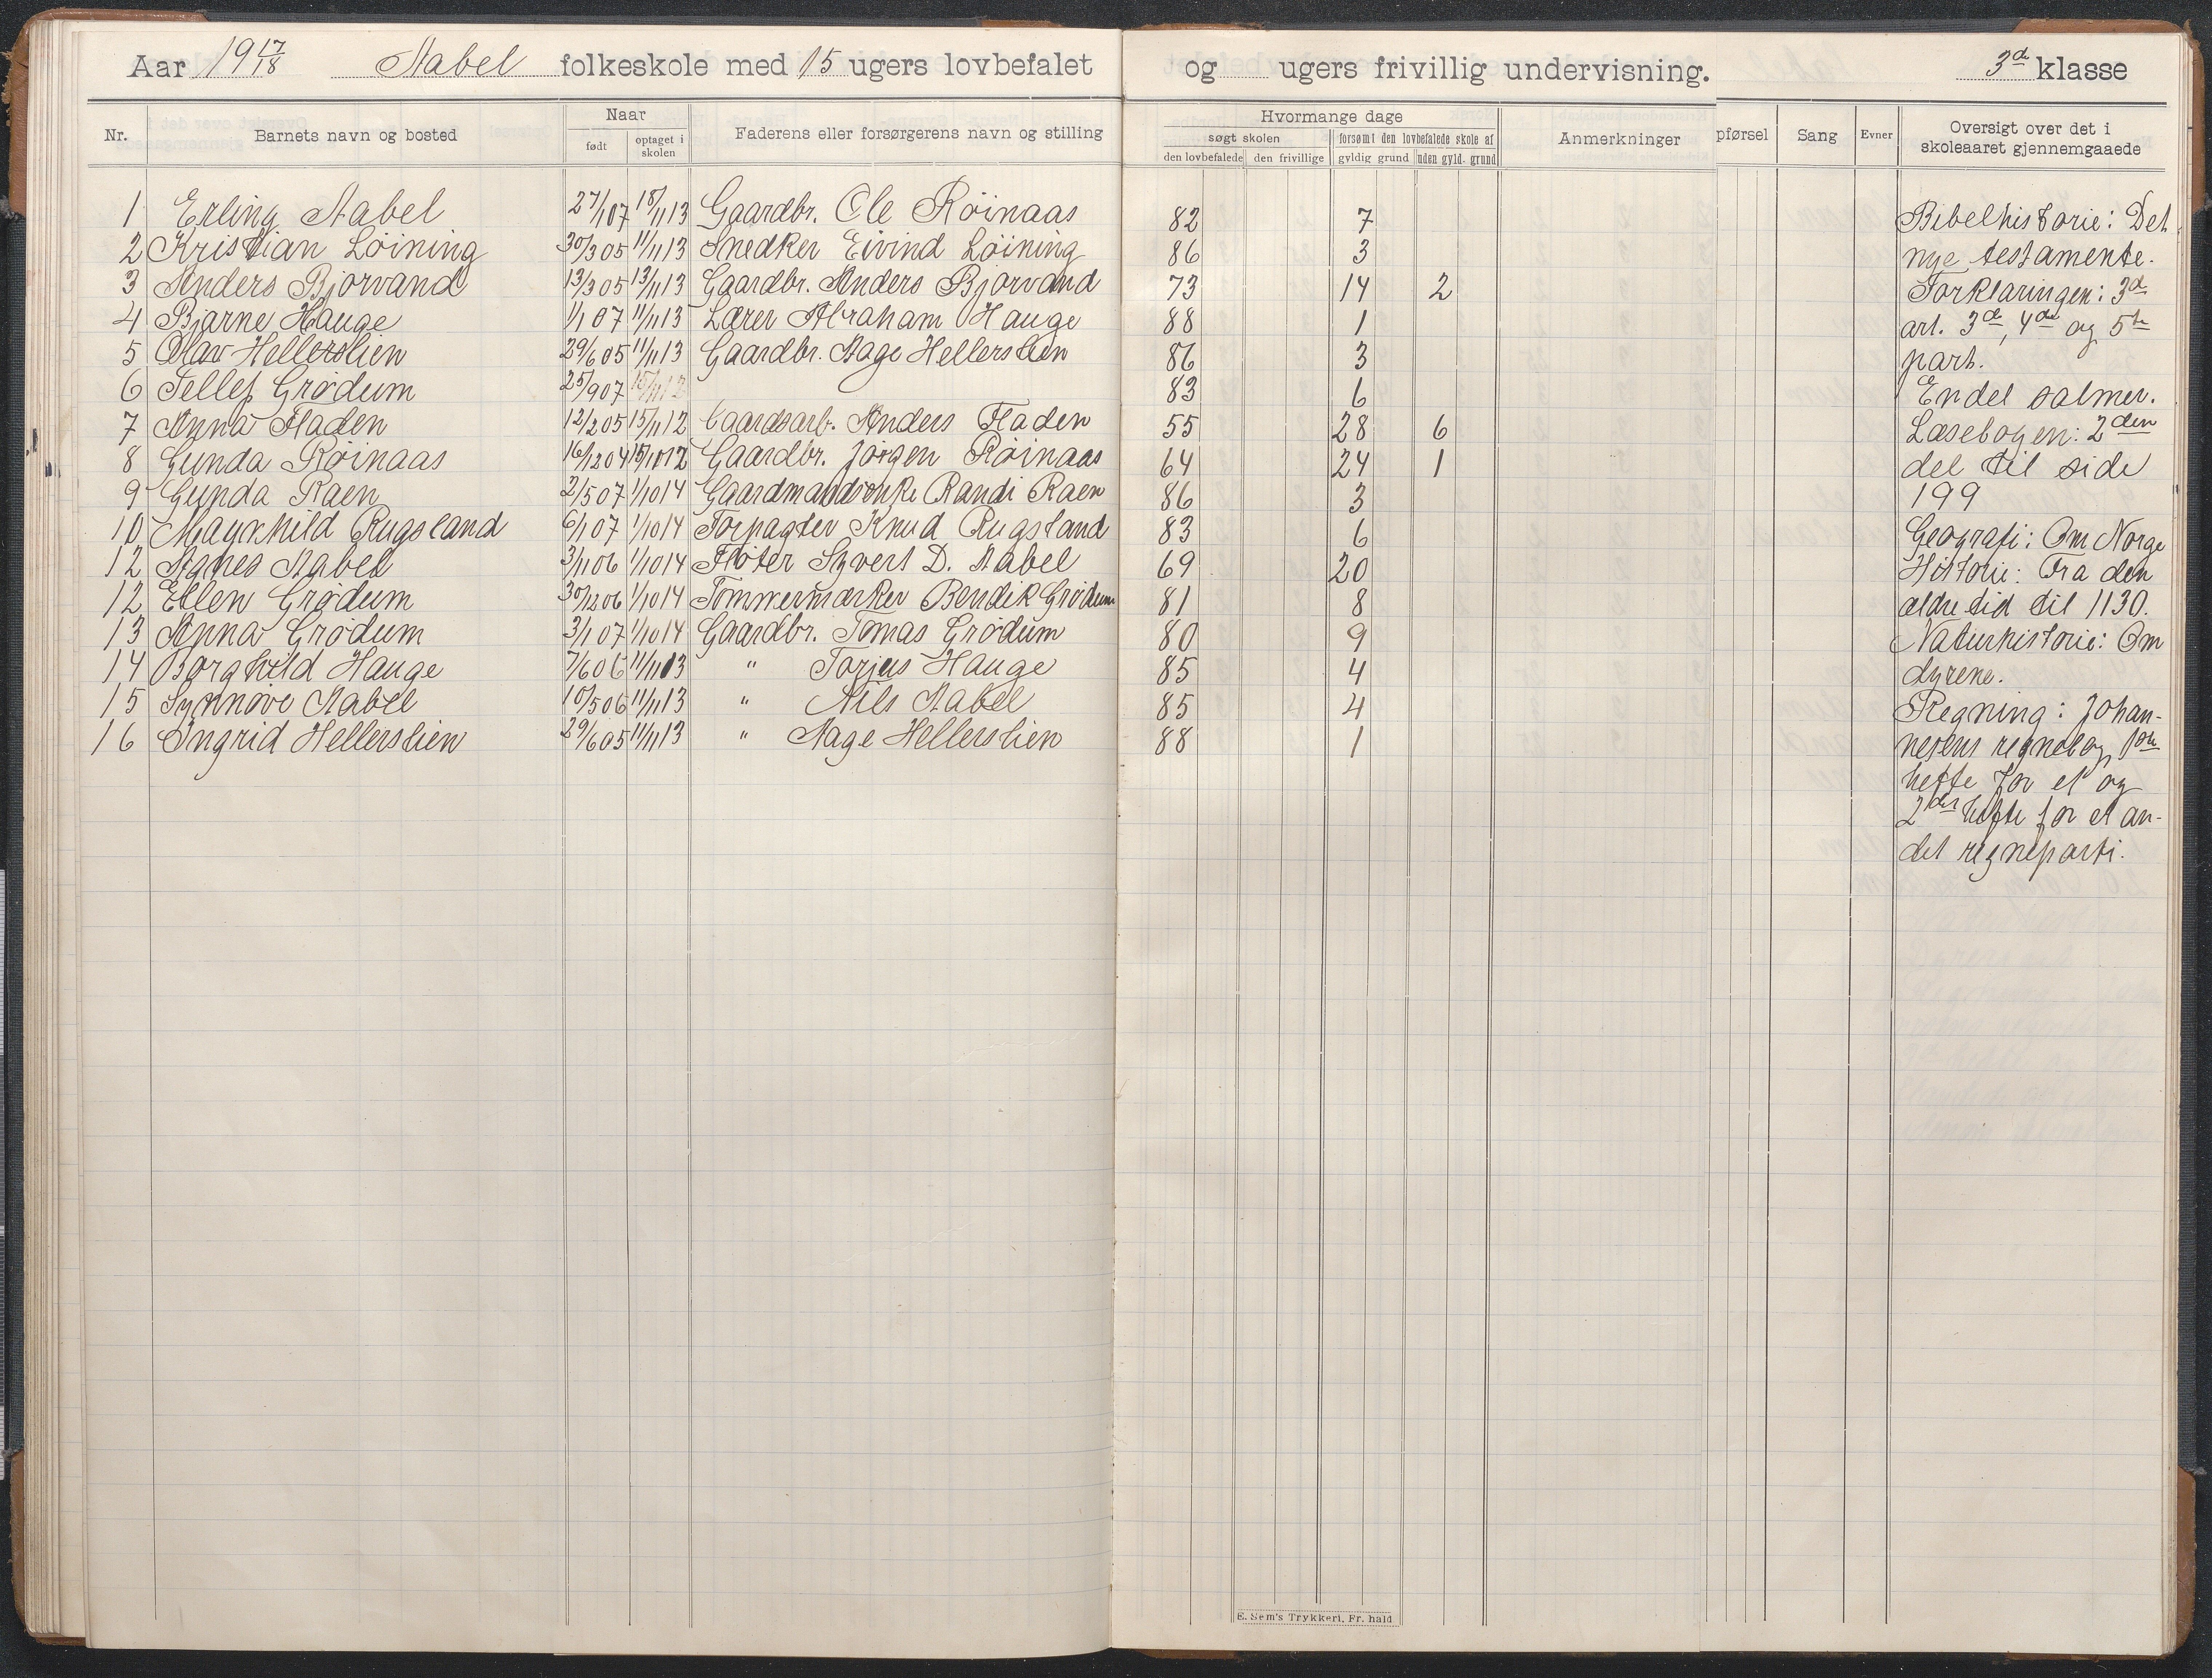 Aar 19 17/18 Aabel folkeskole med 15 ugers lovbefalet og ugers frivillig undervisning. 3d klasse
Nr. Barnets navn og bosted Naar født optaget i skolen Faderens eller forsørgerens navn og stilling Hvormange dage søgt skolen den lovbefalede den frivillige forsømt den lovbefalede skole af gyldig grund uden gyld. grund Anmerkninger pførsel Sang Evner Oversigt over det i skoleaaret gjennemgaaede
1 Erling Aabel 27/1 07 18/11 13 Gaardbr. Ole Röinaas 82 7
2 Kristian Löining 30/3 05 11/11 13 Snedker Eivind Löining 86 3
3 Anders Bjorvand 13/3 05 13/11 13 Gaardbr. Anders Bjorvand 73 14 2
4 Bjarne Hauge 1/1 07 11/11 13 Lærer Abraham Hauge 88 1
5 Olav Hellerslien 29/6 05 11/11 13 Gaardbr. Aage Hellerslien 86 3
6 Tellef Grödum 25/9 07 15/11 12 83 6
7 Anna Fladen 12/2 05 15/11 12 Gaardsarb. Anders Fladen 55 28 6
8 Gunda Röinaas 16/12 04 15/10 12 Gaardbr. Jörgen Röinaas 64 24 1
9 Gunda Raen 2/5 07 1/10 14 Gaardmandsenke Randi Raen 86 3
10 Magnhild Rugsland 6/1 07 1/10 14 Forpagter Knud Rugsland 83 6
12 Agnes Aabel 3/11 06 1/10 14 Fløter Syvert D. Aabel 69 20
12 Ellen Grödum 30/12 06 1/10 14 Tømmermærker Bendik Grödum 81 8
13 Anna Grödum 3/1 07 1/10 14 Gaardbr. Tomas Grödum 80 9
14 Borghild Hauge 7/6 06 11/11 13 " Torjus Hauge 85 4
15 Synnøve Aabel 10/5 06 11/11 13 " Nils Aabel 85 4
16 Ingrid Hellerslien 29/6 05 11/11 13 " Aage Hellerslien 88 1
Bibelhistorie: Det
nye testamente.
Forklaringen: 3d
art. 3d, 4de og 5te
part.
Endel salmer.
Læsebogen: 2den
del til side
199
Geografi: Om Norge
Historie: Fra den
ældre tid til 1130.
Naturhistorie: Om
dyrene.
Regning: Johan-
nesens regnebog, 1ste
hefte for et og
2det hefte for et an-
det regneparti.
E. Sem's Trykkeri, Fr. hald